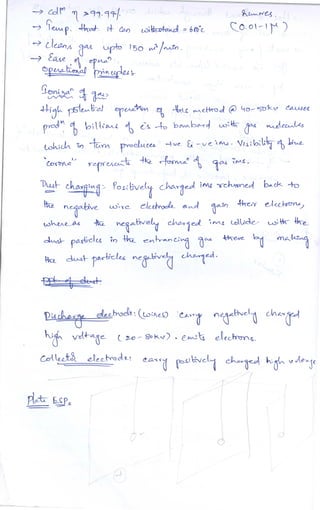 → coln η >99.99%. removes
→ Temp. that it can withstand = 650°c (0.01-1μ)
→ cleans gas upto 150 m³/min.
→ Ease of opernn.
Operational principles:
Ionisn of gas:
High potential operation of this method @ 40-50kv causes
prodn of billions of e's to bombard with gas molecules
which in turn produces +ve & -ve ims. Visibility of blue
"corona" represents the formn of gas ims.
Dust charging: Positively charged ims returned back to
the negative wire electrode and gain their electrons,
where as the negatively charged ims collide with the
dust particles in the entrancing gas there by making
the dust particles negatively charged.
Discharge electrode: (wires) carry negatively charged
high voltage (20-80kv). emits electrons.
Collects electrode: carry positively charged high voltage
Plate ESP.